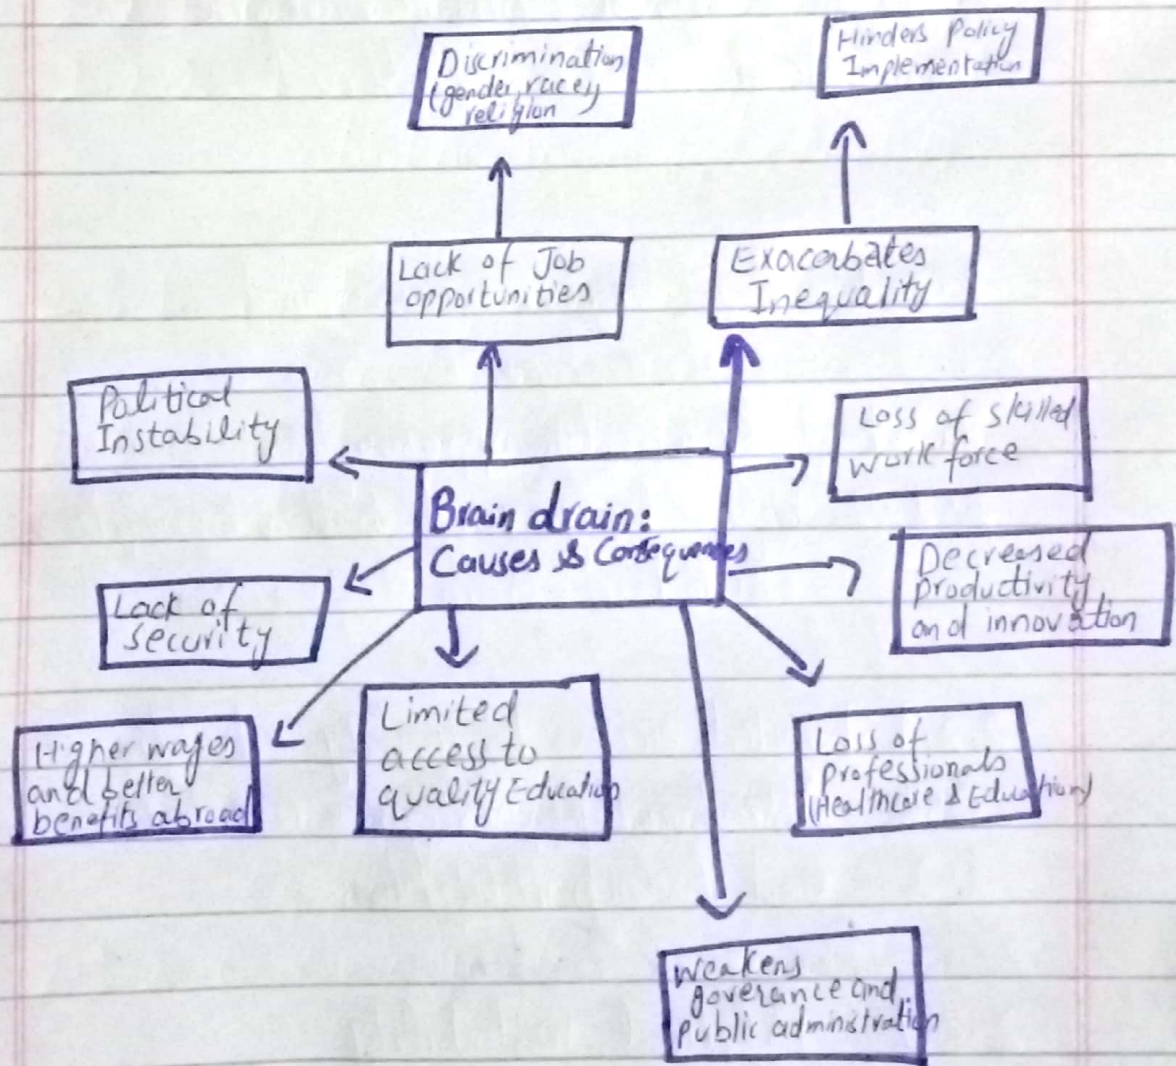 Discrimination
(gender, racey
religion
Hinders Policy
Implementation
Lack of Job
opportunities
Exacerbates
Inequality
Political
Instability
Loss of skilled
work force
Brain drain:
Causes & Consequences
Decreased
productivity
and innovation
Lack of
security
Limited
access to
quality Education
Higher wages
and better
benefits abroad
Loss of
professionals
(Healthcare & Education)
Weakens
goverance and
public administration